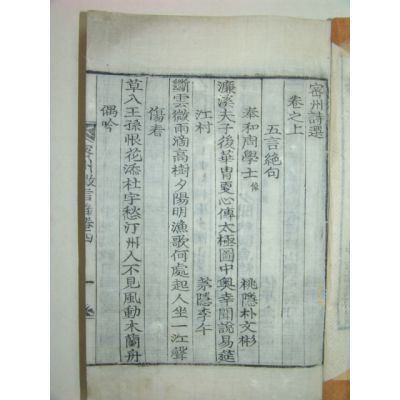 密州詩選
卷之上
五言絶句
奉和周學士 桃隱朴文彬
濂溪夫子後華冑夏心傳太極圖中奧幸聞說易筵
江村 茅隱李午
斷雲微雨滴高樹夕陽明漁歌何處起人坐一江聲
傷春
草入王孫恨花添杜宇愁汀州人不見風動木蘭舟
偶吟
密州徵言卷四